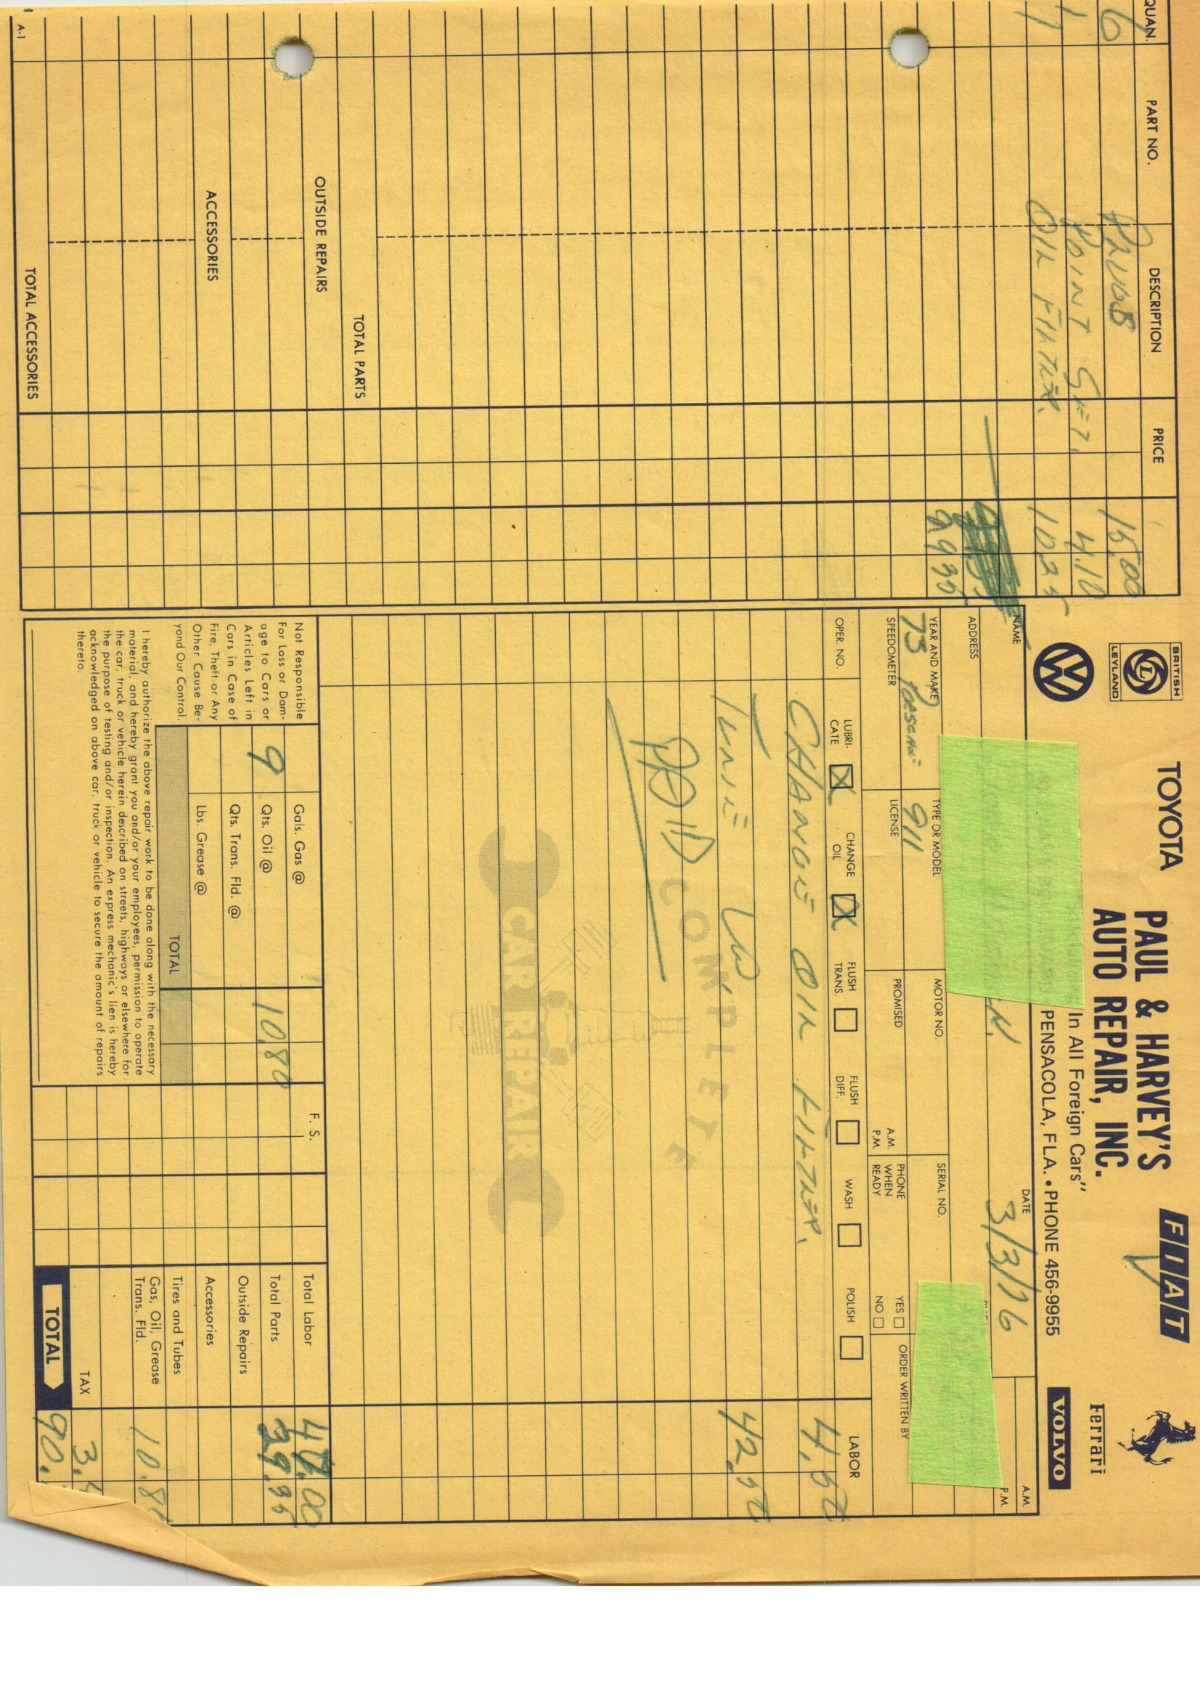 BRITISH
LEYLAND
VW
TOYOTA
PAUL & HARVEY'S
AUTO REPAIR, INC.
FIAT
Ferrari
VOLVO
In All Foreign Cars"
PENSACOLA, FLA. • PHONE 456-9955
NAME
DATE 3/3/76
A.M.
P.M.
ADDRESS
YEAR AND MAKE
TYPE OR MODEL
MOTOR NO.
SERIAL NO.
ORDER WRITTEN BY
73 PORSCHE
911
SPEEDOMETER
LICENSE
PROMISED
A.M.
P.M.
PHONE WHEN READY
YES
NO
OPER. NO.
LUBRI-CATE X
CHANGE OIL X
FLUSH TRANS.
FLUSH DIFF.
WASH
POLISH
LABOR
CHANGE OIL FILTER. 4.50
TUNE UP 42.50
PAID
COMPLETE
CAR REPAIR
QUAN.
PART NO.
DESCRIPTION
PRICE
6 PLUGS 15.00
1 POINT SET. 4.10
1 OIL FILTER. 10.25
29 35
TOTAL PARTS
OUTSIDE REPAIRS
ACCESSORIES
TOTAL ACCESSORIES
A-1
Not Responsible
For Loss or Dam-
age to Cars or
Articles Left in
Cars in Case of
Fire, Theft or Any
Other Cause Be-
yond Our Control.
Gals. Gas @
9 Qts. Oil @ 10.80
Qts. Trans. Fld. @
Lbs. Grease @
TOTAL
I hereby authorize the above repair work to be done along with the necessary
material, and hereby grant you and/or your employees, permission to operate
the car, truck or vehicle herein described on streets, highways or elsewhere for
the purpose of testing and/or inspection. An express mechanic's lien is hereby
acknowledged on above car, truck or vehicle to secure the amount of repairs
thereto.
F. S.
Total Labor
Total Parts 29.35
Outside Repairs
Accessories
Tires and Tubes
Gas, Oil, Grease
Trans. Fld. 10.80
TAX
TOTAL 90.